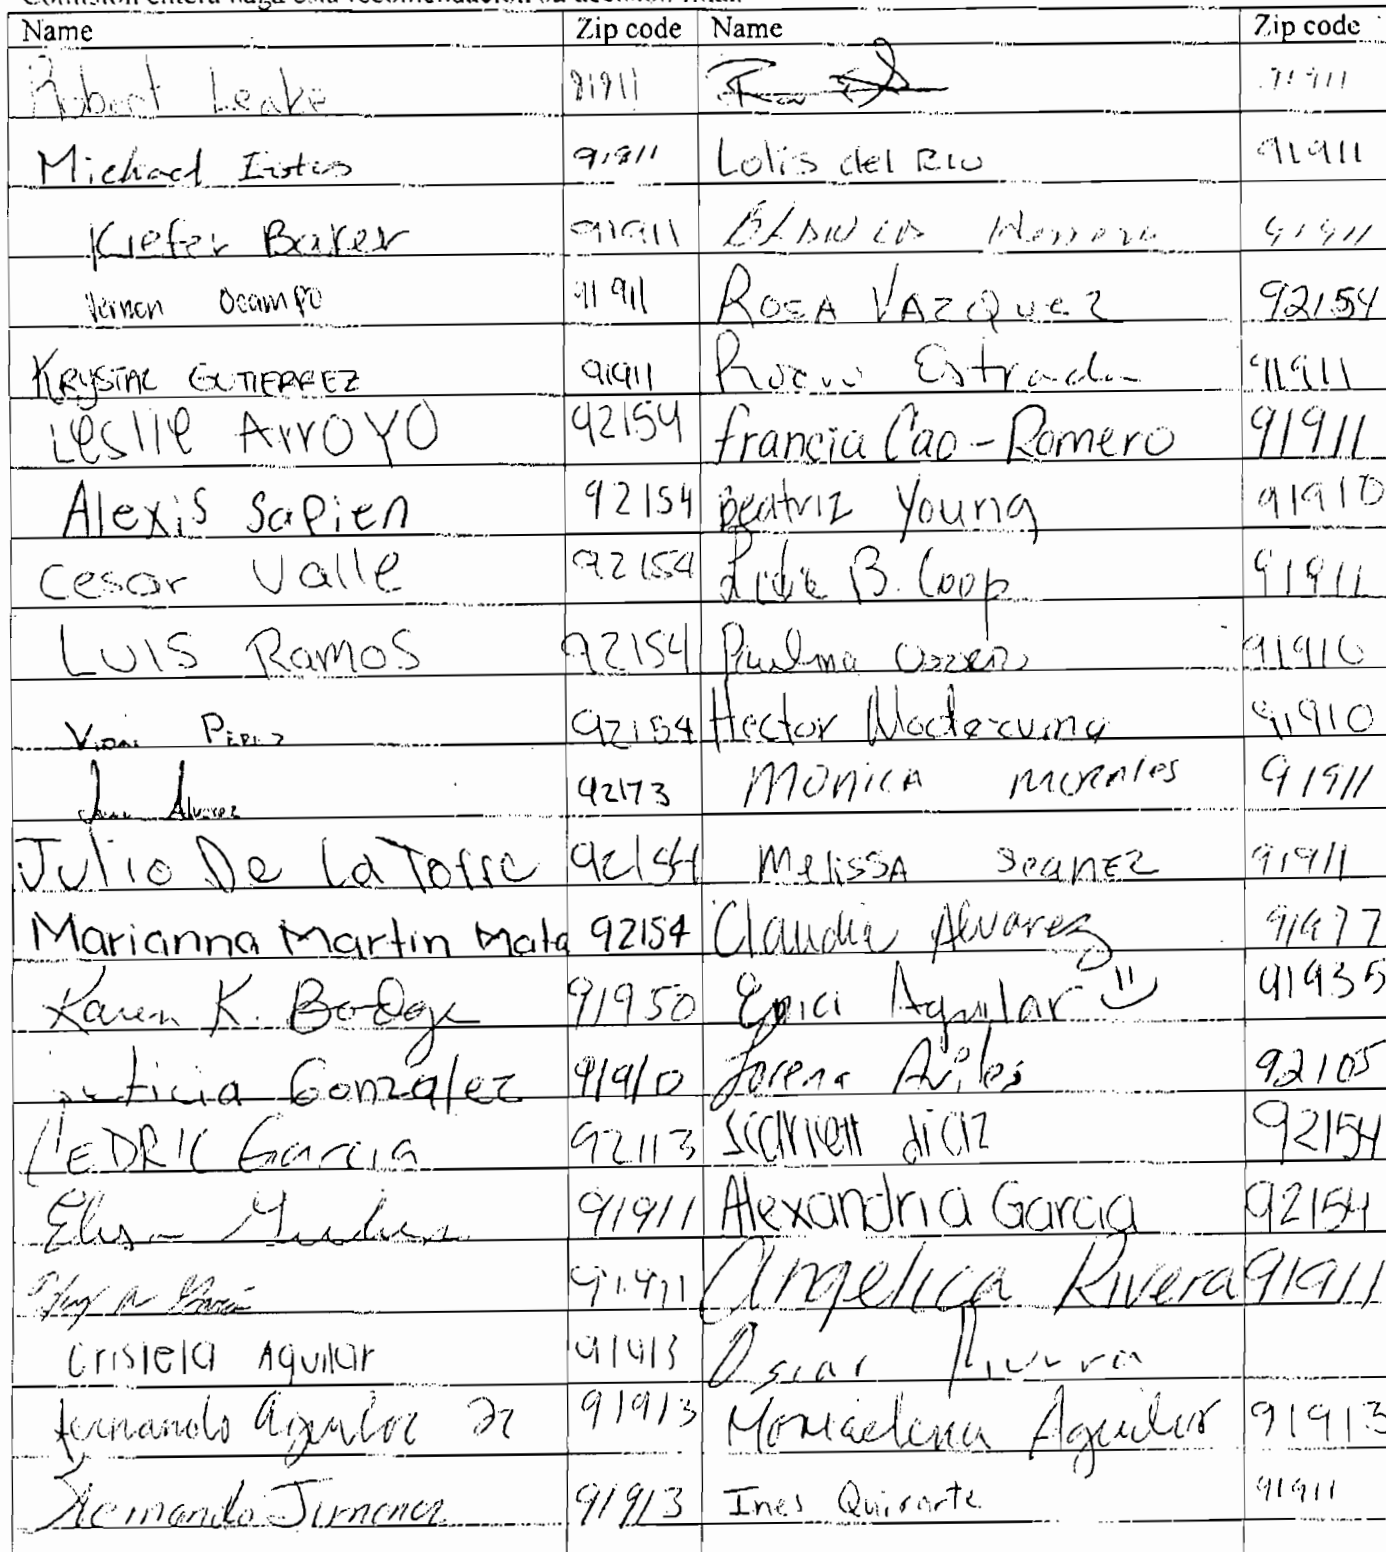 Name Zip code Name Zip code
Robert Leake 91911 91911
Michael 91911 Lolis del Rio 91911
Kiefer Baker 91911 Blanca Herrera 91911
Vernon Ocampo 91911 Rosa Vazquez 92154
Krystal Gutierrez 91911 Rocio Estrada 91911
Leslie Arroyo 92154 Francia Cao-Romero 91911
Alexis Sapien 92154 Beatriz Young 91910
Cesar Valle 92154 B. Coop 91911
Luis Ramos 92154 91910
Vidal Perez 92154 Hector Moctezuma 91910
Juan Alvarez 92173 Monica Morales 91911
Julio De La Torre 92154 Melissa Seanez 91911
Marianna Martin Mata 92154 Claudia Alvarez 91977
Karen K. Bodge 91950 Aguilar 91935
Leticia Gonzalez 91910 Lorena Aviles 92105
Cedric Garcia 92113 diaz 92154
Elisa 91911 Alexandria Garcia 92154
91911 Angelica Rivera 91911
Crisiela Aguilar 91913 Oscar Rivera
Fernando Aguilar Jr 91913 Aguilar 91913
Armando Jimenez 91913 Ines Quirarte 91911